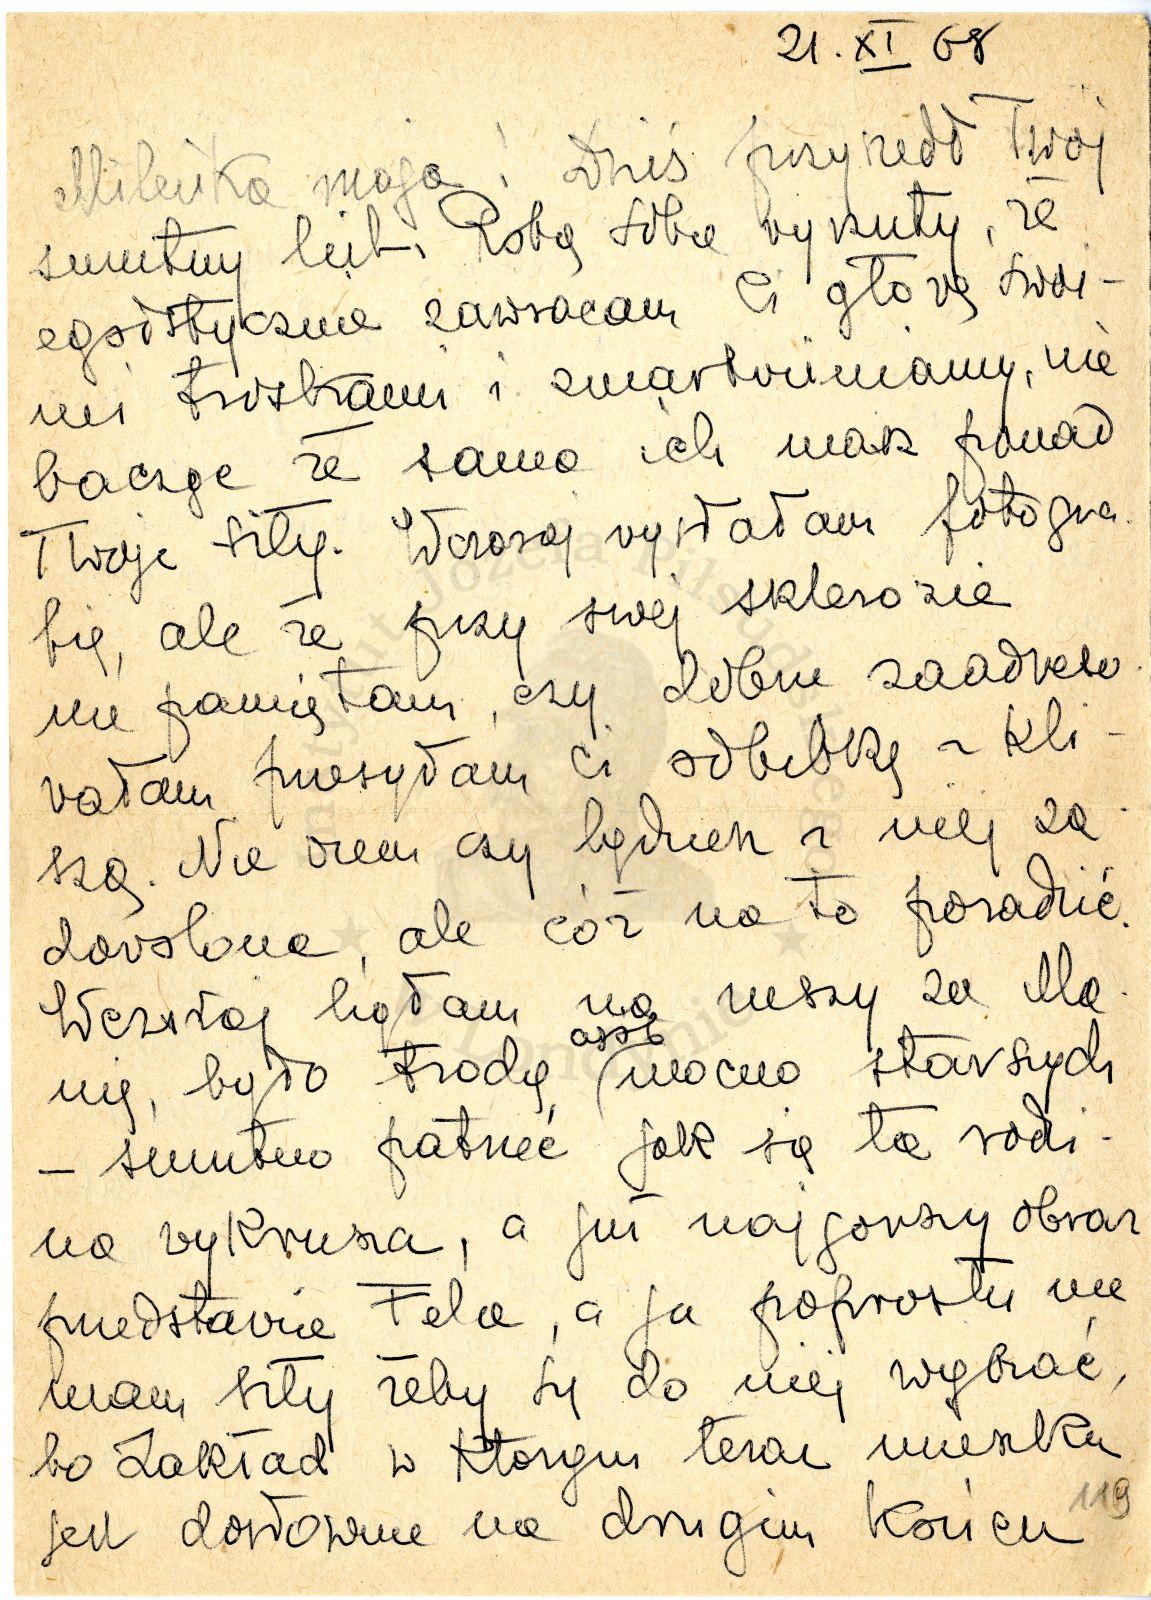 21. XI 68
Mileńka moja! Dziś przyszedł Twój
smutny list. Robię sobie wyrzuty, że
egoistycznie zawracam Ci głowę swoi-
mi troskami i zmartwieniamy, nie
bacząc że sama ich masz ponad
Twoje siły. Wczoraj wysłałam fotogra-
fię, ale że przy swej sklerozie
nie pamiętam, czy dobrze zaadreso-
wałam przesyłam Ci odbitkę z kli-
szą. Nie wiem czy będziesz z niej za-
dowolona, ale cóż na to poradzić.
Wczoraj byłam na mszy za Ma-
nię, było trochę osób mocno starszych
– smutno patrzeć jak się ta rodzi-
na wykrusza, a już najgorszy obraz
przedstawia Fela, a ja poprostu nie
mam siły żeby się do niej wybrać,
bo Zakład w którym teraz mieszka
jest dosłownie na drugim końcu
119
Instytut Józefa Piłsudskiego
w Londynie